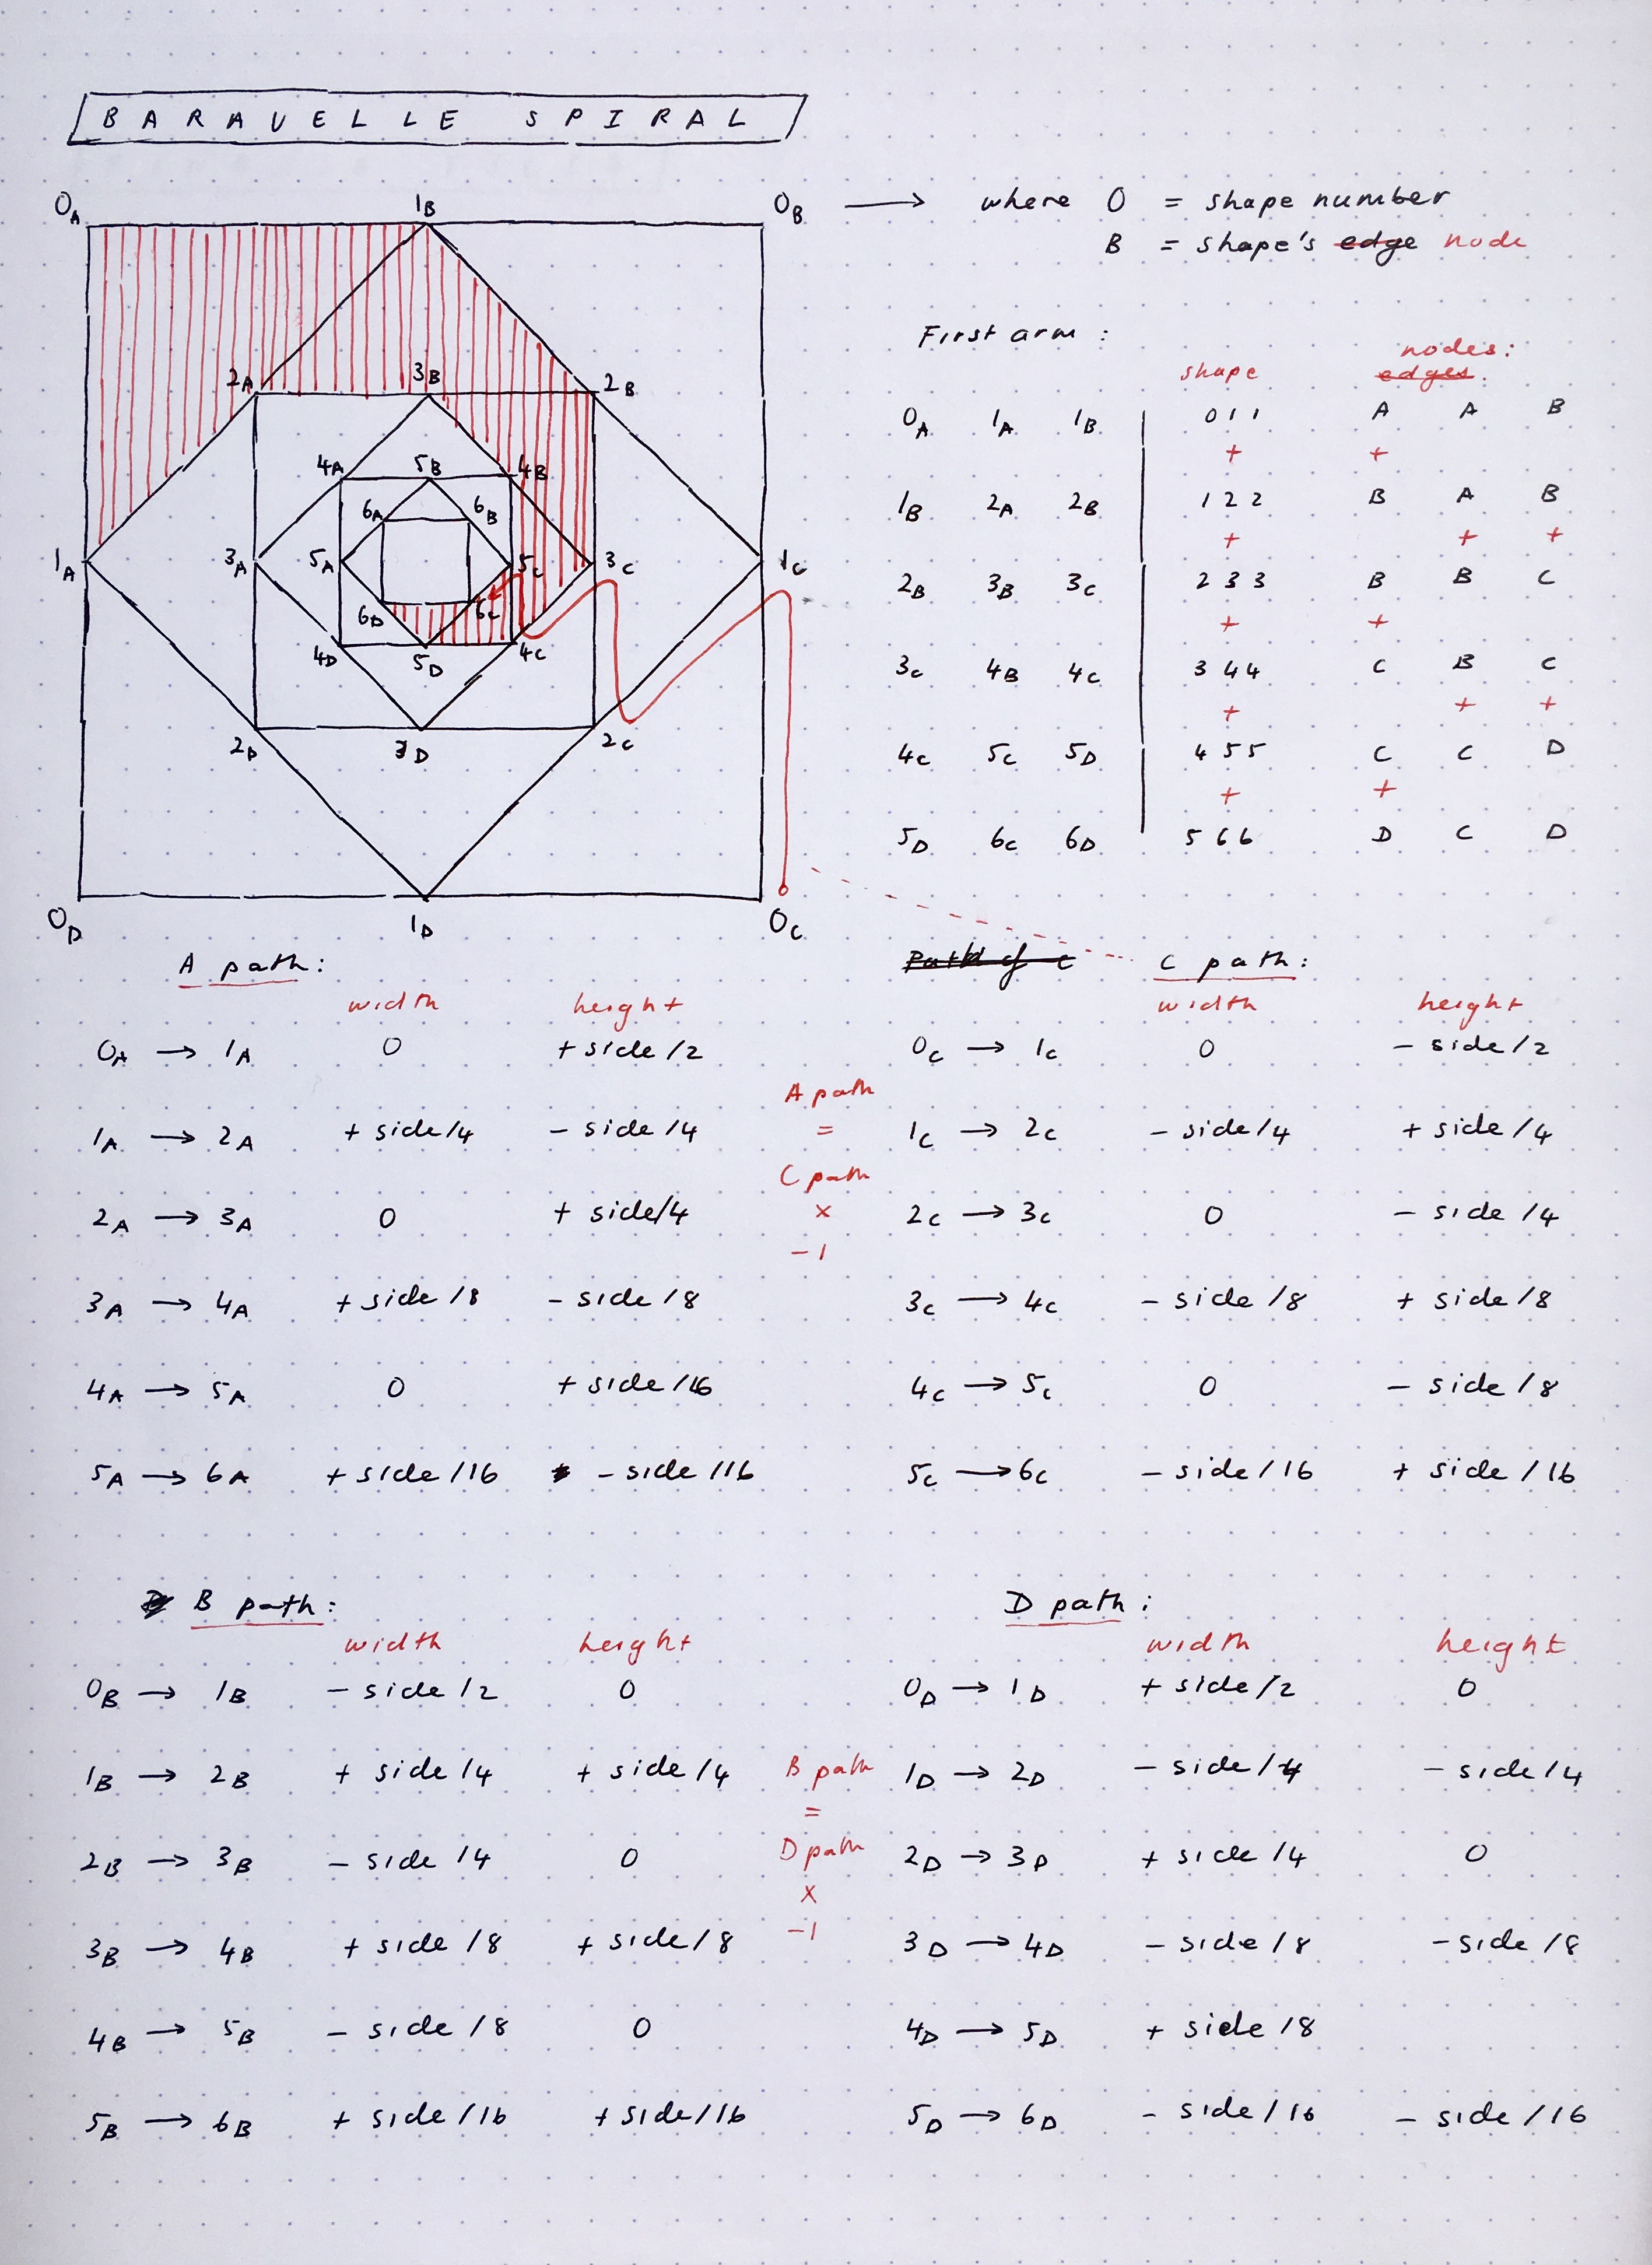 BARAVELLE SPIRAL
0A 1B 0B → where 0 = shape number
B = shape's edge node
First arm :
shape nodes:
edges.
0A 1A 1B 0 1 1 A A B
+ +
1B 2A 2B 1 2 2 B A B
+ + +
2B 3B 3C 2 3 3 B B C
+ +
3C 4B 4C 3 4 4 C B C
+ + +
4C 5C 5D 4 5 5 C C D
+ +
5D 6C 6D 5 6 6 D C D
2A 3B 2B
4A 5B 4B
6A 6B
1A 3A 5A 5C 3C 1C
6D 6C
4D 5D 4C
2D 3D 2C
0D 1D 0C
A path:
width height
0A → 1A 0 + side/2
1A → 2A + side/4 - side/4
2A → 3A 0 + side/4
3A → 4A + side/8 - side/8
4A → 5A 0 + side/16
5A → 6A + side/16 - side/16
A path
=
C path
x
-1
Path of C C path:
width height
0C → 1C 0 - side/2
1C → 2C - side/4 + side/4
2C → 3C 0 - side/4
3C → 4C - side/8 + side/8
4C → 5C 0 - side/8
5C → 6C - side/16 + side/16
B path:
width height
0B → 1B - side/2 0
1B → 2B + side/4 + side/4
2B → 3B - side/4 0
3B → 4B + side/8 + side/8
4B → 5B - side/8 0
5B → 6B + side/16 + side/16
B path
=
D path
x
-1
D path:
width height
0D → 1D + side/2 0
1D → 2D - side/4 - side/4
2D → 3D + side/4 0
3D → 4D - side/8 - side/8
4D → 5D + side/8
5D → 6D - side/16 - side/16